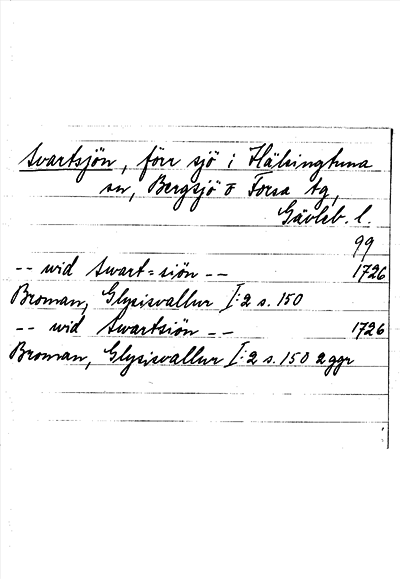 Svartsjön, förr sjö i Hälsingtuna
sn, Bergsjö o Forsa tg,
Gävleb. l.
99
-- wid Swart=siön -- 1726
Broman, Glysisvallur I:2 s. 150
-- wid Swartsiön -- 1726
Broman, Glysisvallur I:2 s. 150 2 ggr